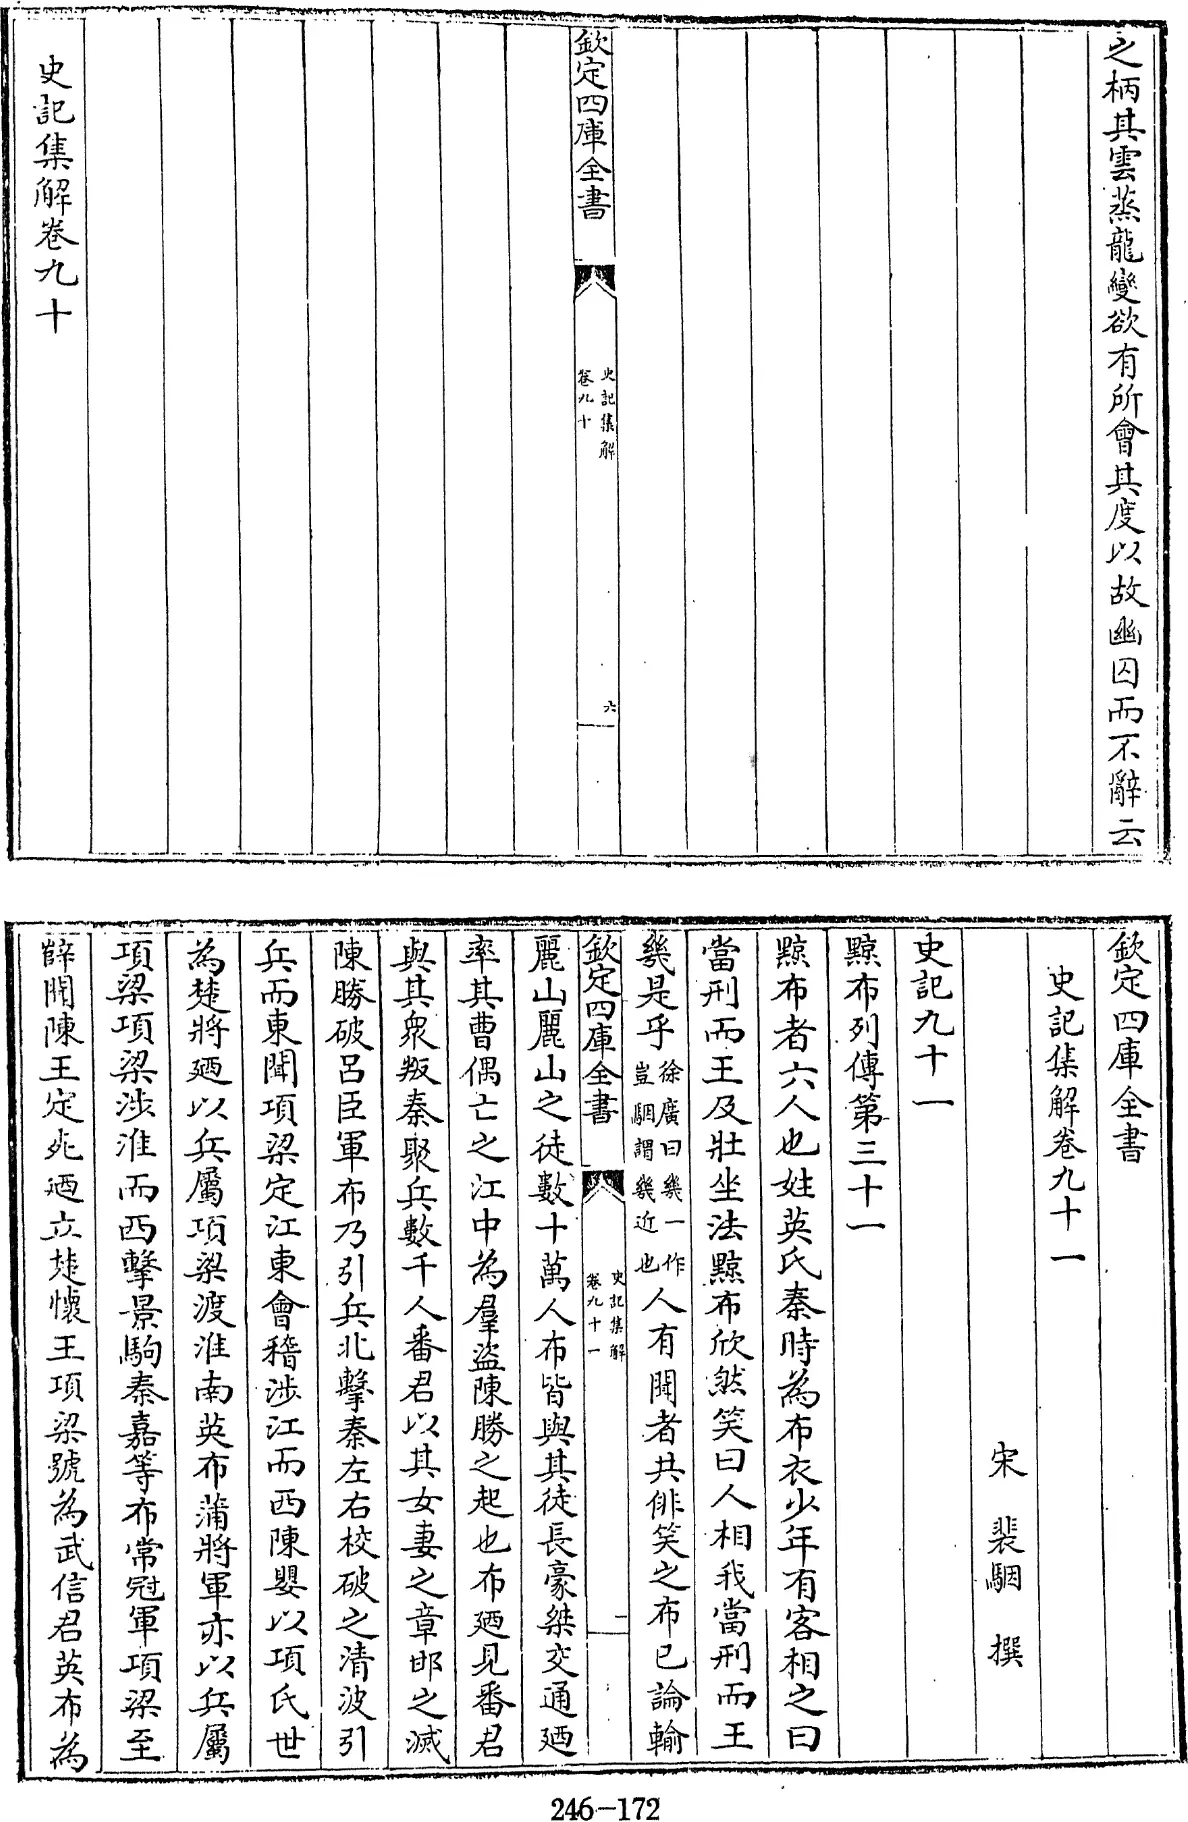 之柄其雲蒸龍變欲有所會其度以故幽囚而不辭云
欽定四庫全書
史記集解
卷九十
六
史記集解卷九十
欽定四庫全書
史記集解卷九十一
宋 裴駰 撰
史記九十一
黥布列傳第三十一
黥布者六人也姓英氏秦時為布衣少年有客相之曰
當刑而王及壯坐法黥布欣然笑曰人相我當刑而王
幾是乎徐廣曰幾一作豈駰謂幾近也人有聞者共俳笑之布已論輸
欽定四庫全書
史記集解
卷九十一
一
麗山麗山之徒數十萬人布皆與其徒長豪桀交通廼
率其曹偶亡之江中為羣盜陳勝之起也布廼見番君
與其衆叛秦聚兵數千人番君以其女妻之章邯之滅
陳勝破呂臣軍布乃引兵北擊秦左右校破之清波引
兵而東聞項梁定江東會稽涉江而西陳嬰以項氏世
為楚將廼以兵屬項梁渡淮南英布蒲將軍亦以兵屬
項梁項梁涉淮而西擊景駒秦嘉等布常冠軍項梁至
薛聞陳王定死廼立楚懷王項梁號為武信君英布為
246-172